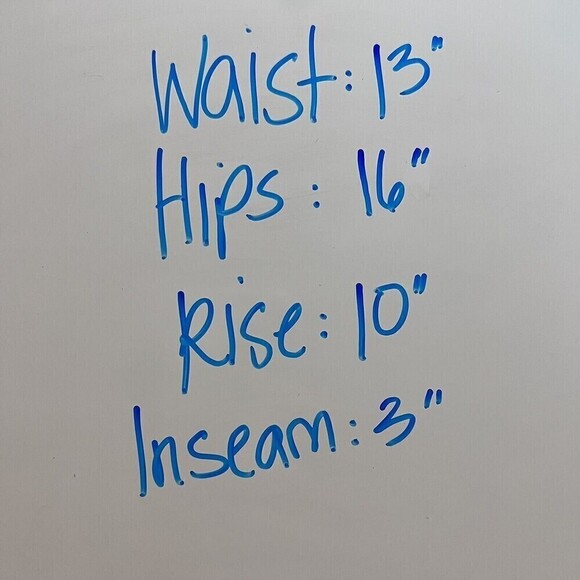 Waist: 13"
Hips: 16"
Rise: 10"
Inseam: 3"